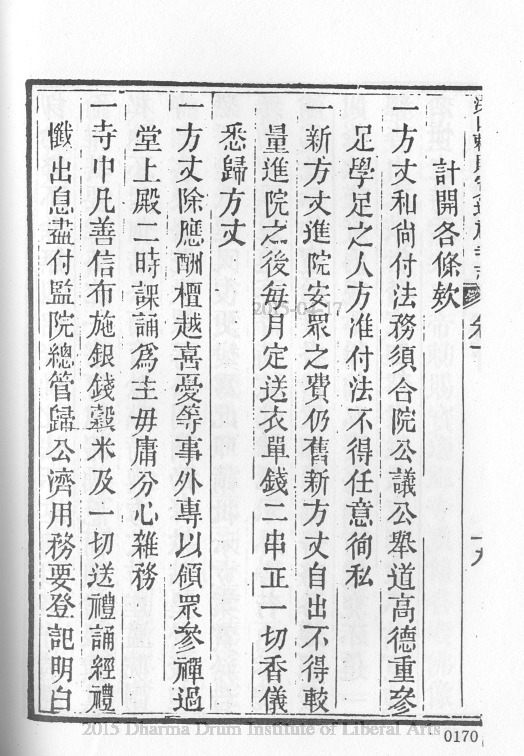 計開各條欵
一方丈和尙付法務須合院公議公舉道高德重參
足學足之人方准付法不得任意徇私
一新方丈進院安眾之費仍舊新方丈自出不得較
量進院之後每月定送衣單錢二串正一切香儀
悉歸方丈
一方丈除應酬檀越喜憂等事外專以領眾參禪過
堂上殿二時課誦爲主毋庸分心雜務
一寺中凡善信布施銀錢穀米及一切送禮誦經禮
懺出息盡付監院總管歸公濟用務要登記明白
2015 Dharma Drum Institute of Liberal Arts
0170